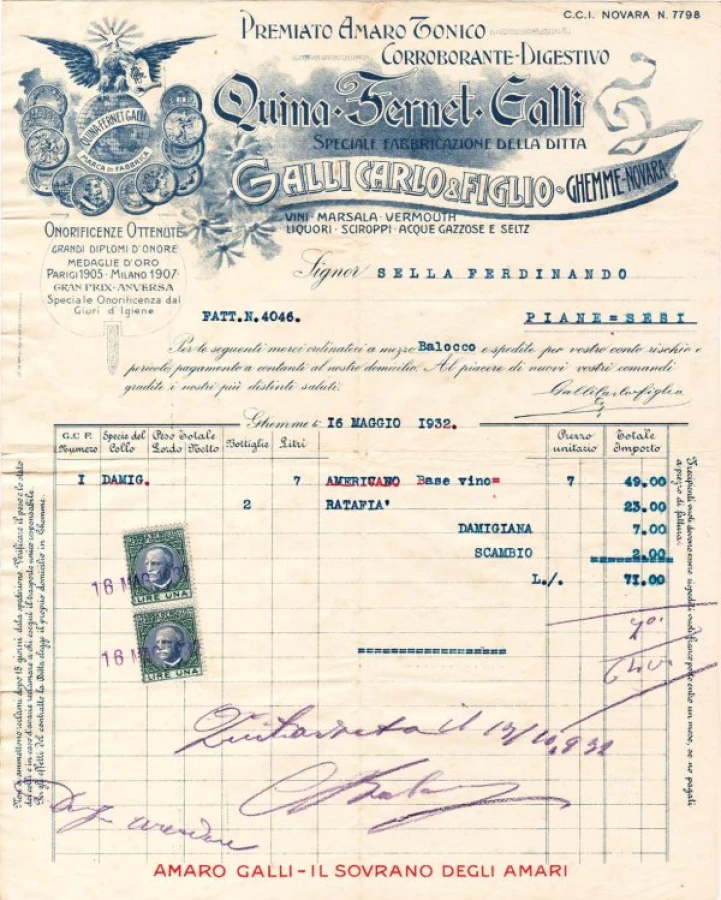 C.C.I. NOVARA N. 7798
PREMIATO AMARO TONICO
CORROBORANTE-DIGESTIVO
Quina-Fernet-Galli
SPECIALE FABBRICAZIONE DELLA DITTA
GALLI CARLO & FIGLIO - GHEMME-NOVARA
QUINA-FERNET GALLI
MARCA DI FABBRICA
VINI - MARSALA - VERMOUTH
LIQUORI - SCIROPPI - ACQUE GAZZOSE E SELTZ
ONORIFICENZE OTTENUTE
GRANDI DIPLOMI D'ONORE
MEDAGLIE D'ORO
PARIGI 1905 - MILANO 1907
GRAN PRIX - ANVERSA
Speciale Onorificenza dal
Giurì d'Igiene
Signor SELLA FERDINANDO
FATT.N.4046. PIANE=SESI
Per le seguenti merci ordinateci a mezzo Balocco e spedite per vostro conto rischio e
pericolo pagamento a contanti al nostro domicilio. Al piacere di nuovi vostri comandi
gradite i nostri più distinti saluti.
Galli Carlo & figlio
Ghemme li 16 MAGGIO 1932.
G.C F. Numero Specie del Collo Peso Totale Lordo Netto Bottiglie Litri Prezzo unitario Totale Importo
I DAMIG. 7 AMERICANO Base vino= 7 49.00
2 RATAFIA' 23.00
DAMIGIANA 7.00
SCAMBIO 2.00
L./. 71.00
16 MAG
LIRE UNA
16 M
LIRE UNA
Non si ammettono reclami dopo 15 giorni dalla spedizione. Verificare il peso e lo stato
dei colli e in caso d'avarie reclamare a chi eseguì il trasporto unico responsabile.
Per gli effetti del contratto la Ditta elegge il proprio domicilio in Ghemme.
I recipienti vuoti devono essere ispediti vuoti franco porto entro un mese, se no pagati
a prezzo di fattura.
il
AMARO GALLI - IL SOVRANO DEGLI AMARI